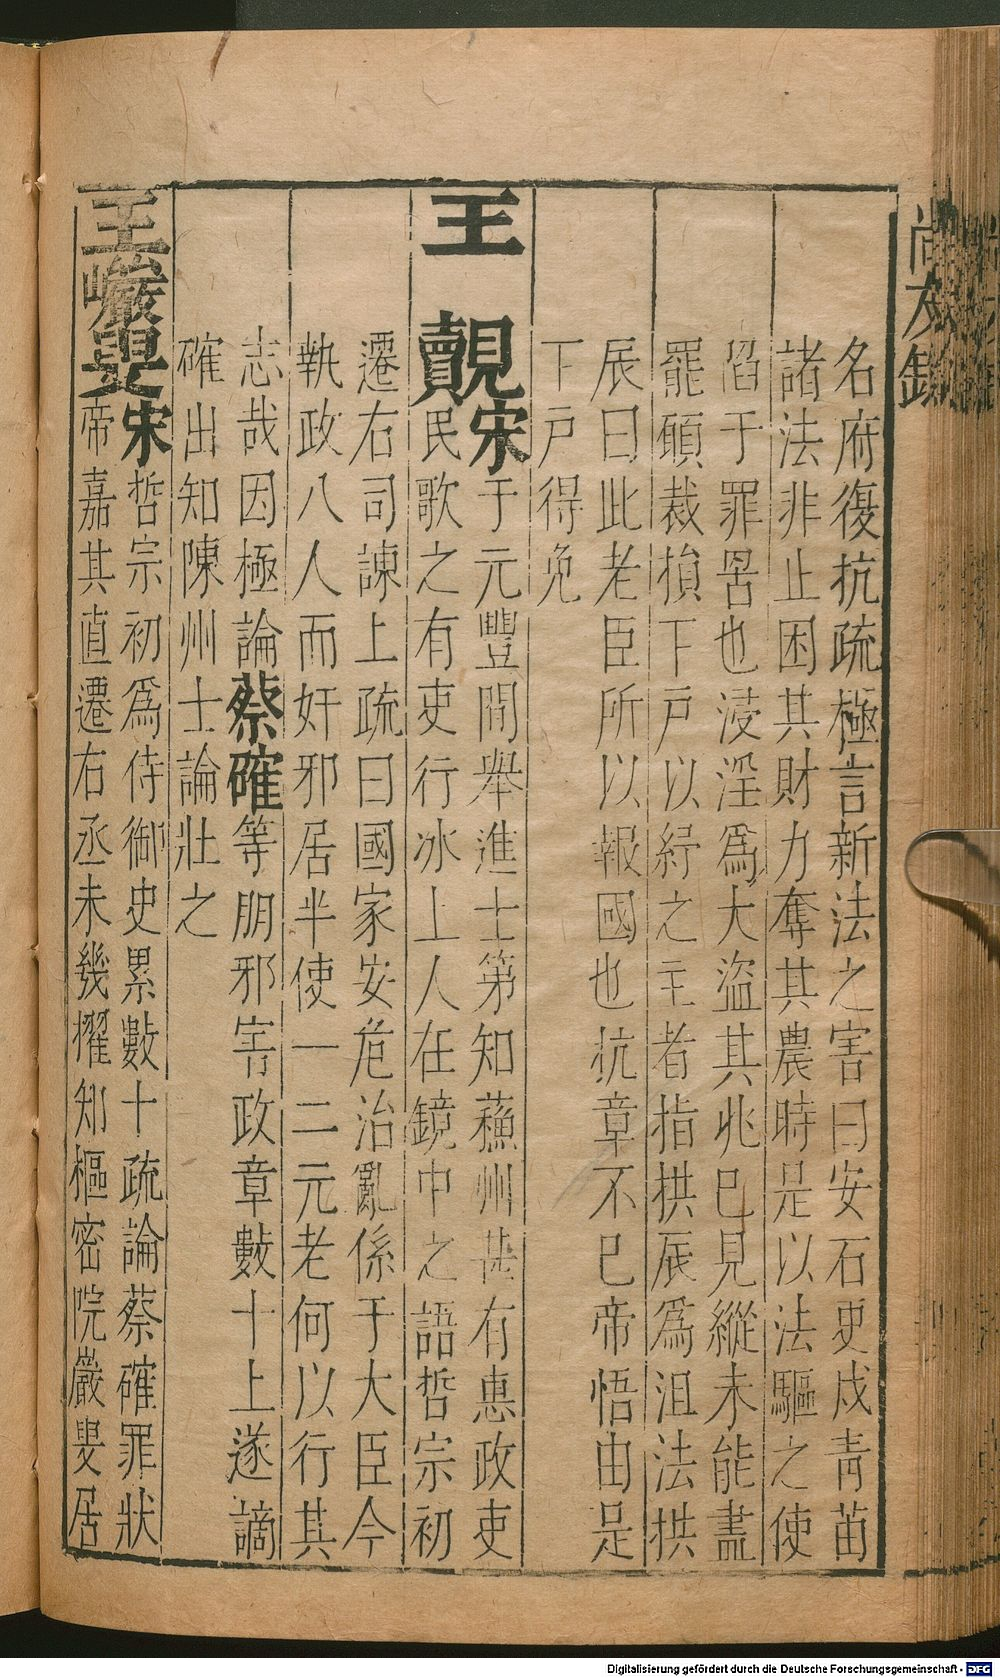 尚友錄
名府復抗疏極言新法之害曰安石吏戍青苗
諸法非止困其財力奪其農時是以法驅之使
陷于罪罟也浸淫爲大盜其兆已見縱未能盡
罷願裁損下戶以紓之主者指拱辰爲沮法拱
辰曰此老臣所以報國也抗章不已帝悟由是
下戶得免
王覿宋于元豐間舉進士第知蘇州甚有惠政吏
民歌之有吏行冰上人在鏡中之語哲宗初
遷右司諫上疏曰國家安危治亂係于大臣今
執政八人而奸邪居半使一二元老何以行其
志哉因極論蔡確等朋邪害政章數十上遂謫
確出知陳州士論壯之
王巖叟宋哲宗初爲侍御史累數十疏論蔡確罪狀
帝嘉其直遷右丞未幾擢知樞密院巖叟居
Digitalisierung gefördert durch die Deutsche Forschungsgemeinschaft - DFG